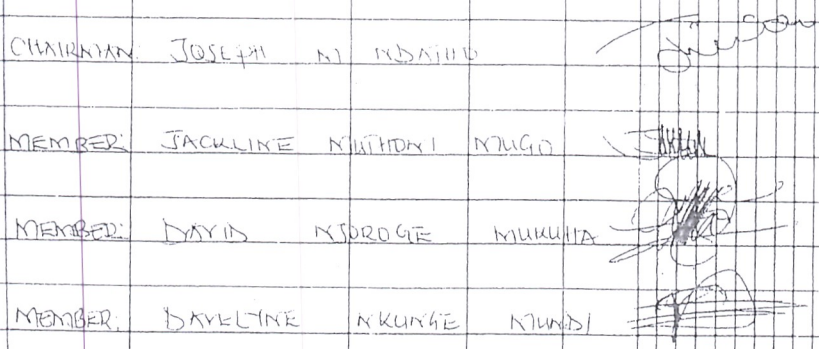 CHAIRMAN: JOSEPH M NDAIHU
MEMBER: JACKLINE MUTHONI MUGO
MEMBER: DAVID NJOROGE MUKUHA
MEMBER: DAVELYNE NKUNGE MUNDI